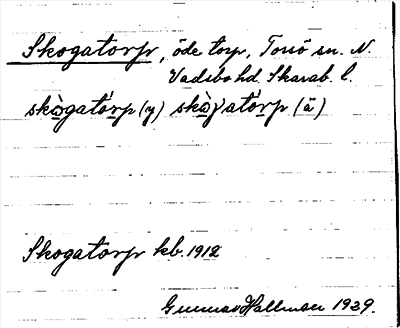 Skogatorp, öde torp, Torsö sn. N.
Vadsbo hd. Skarab. l.
skògatórp (y) skòγatórp (ä)
Skogatorp kb. 1912
Gunnar Hallman 1939.